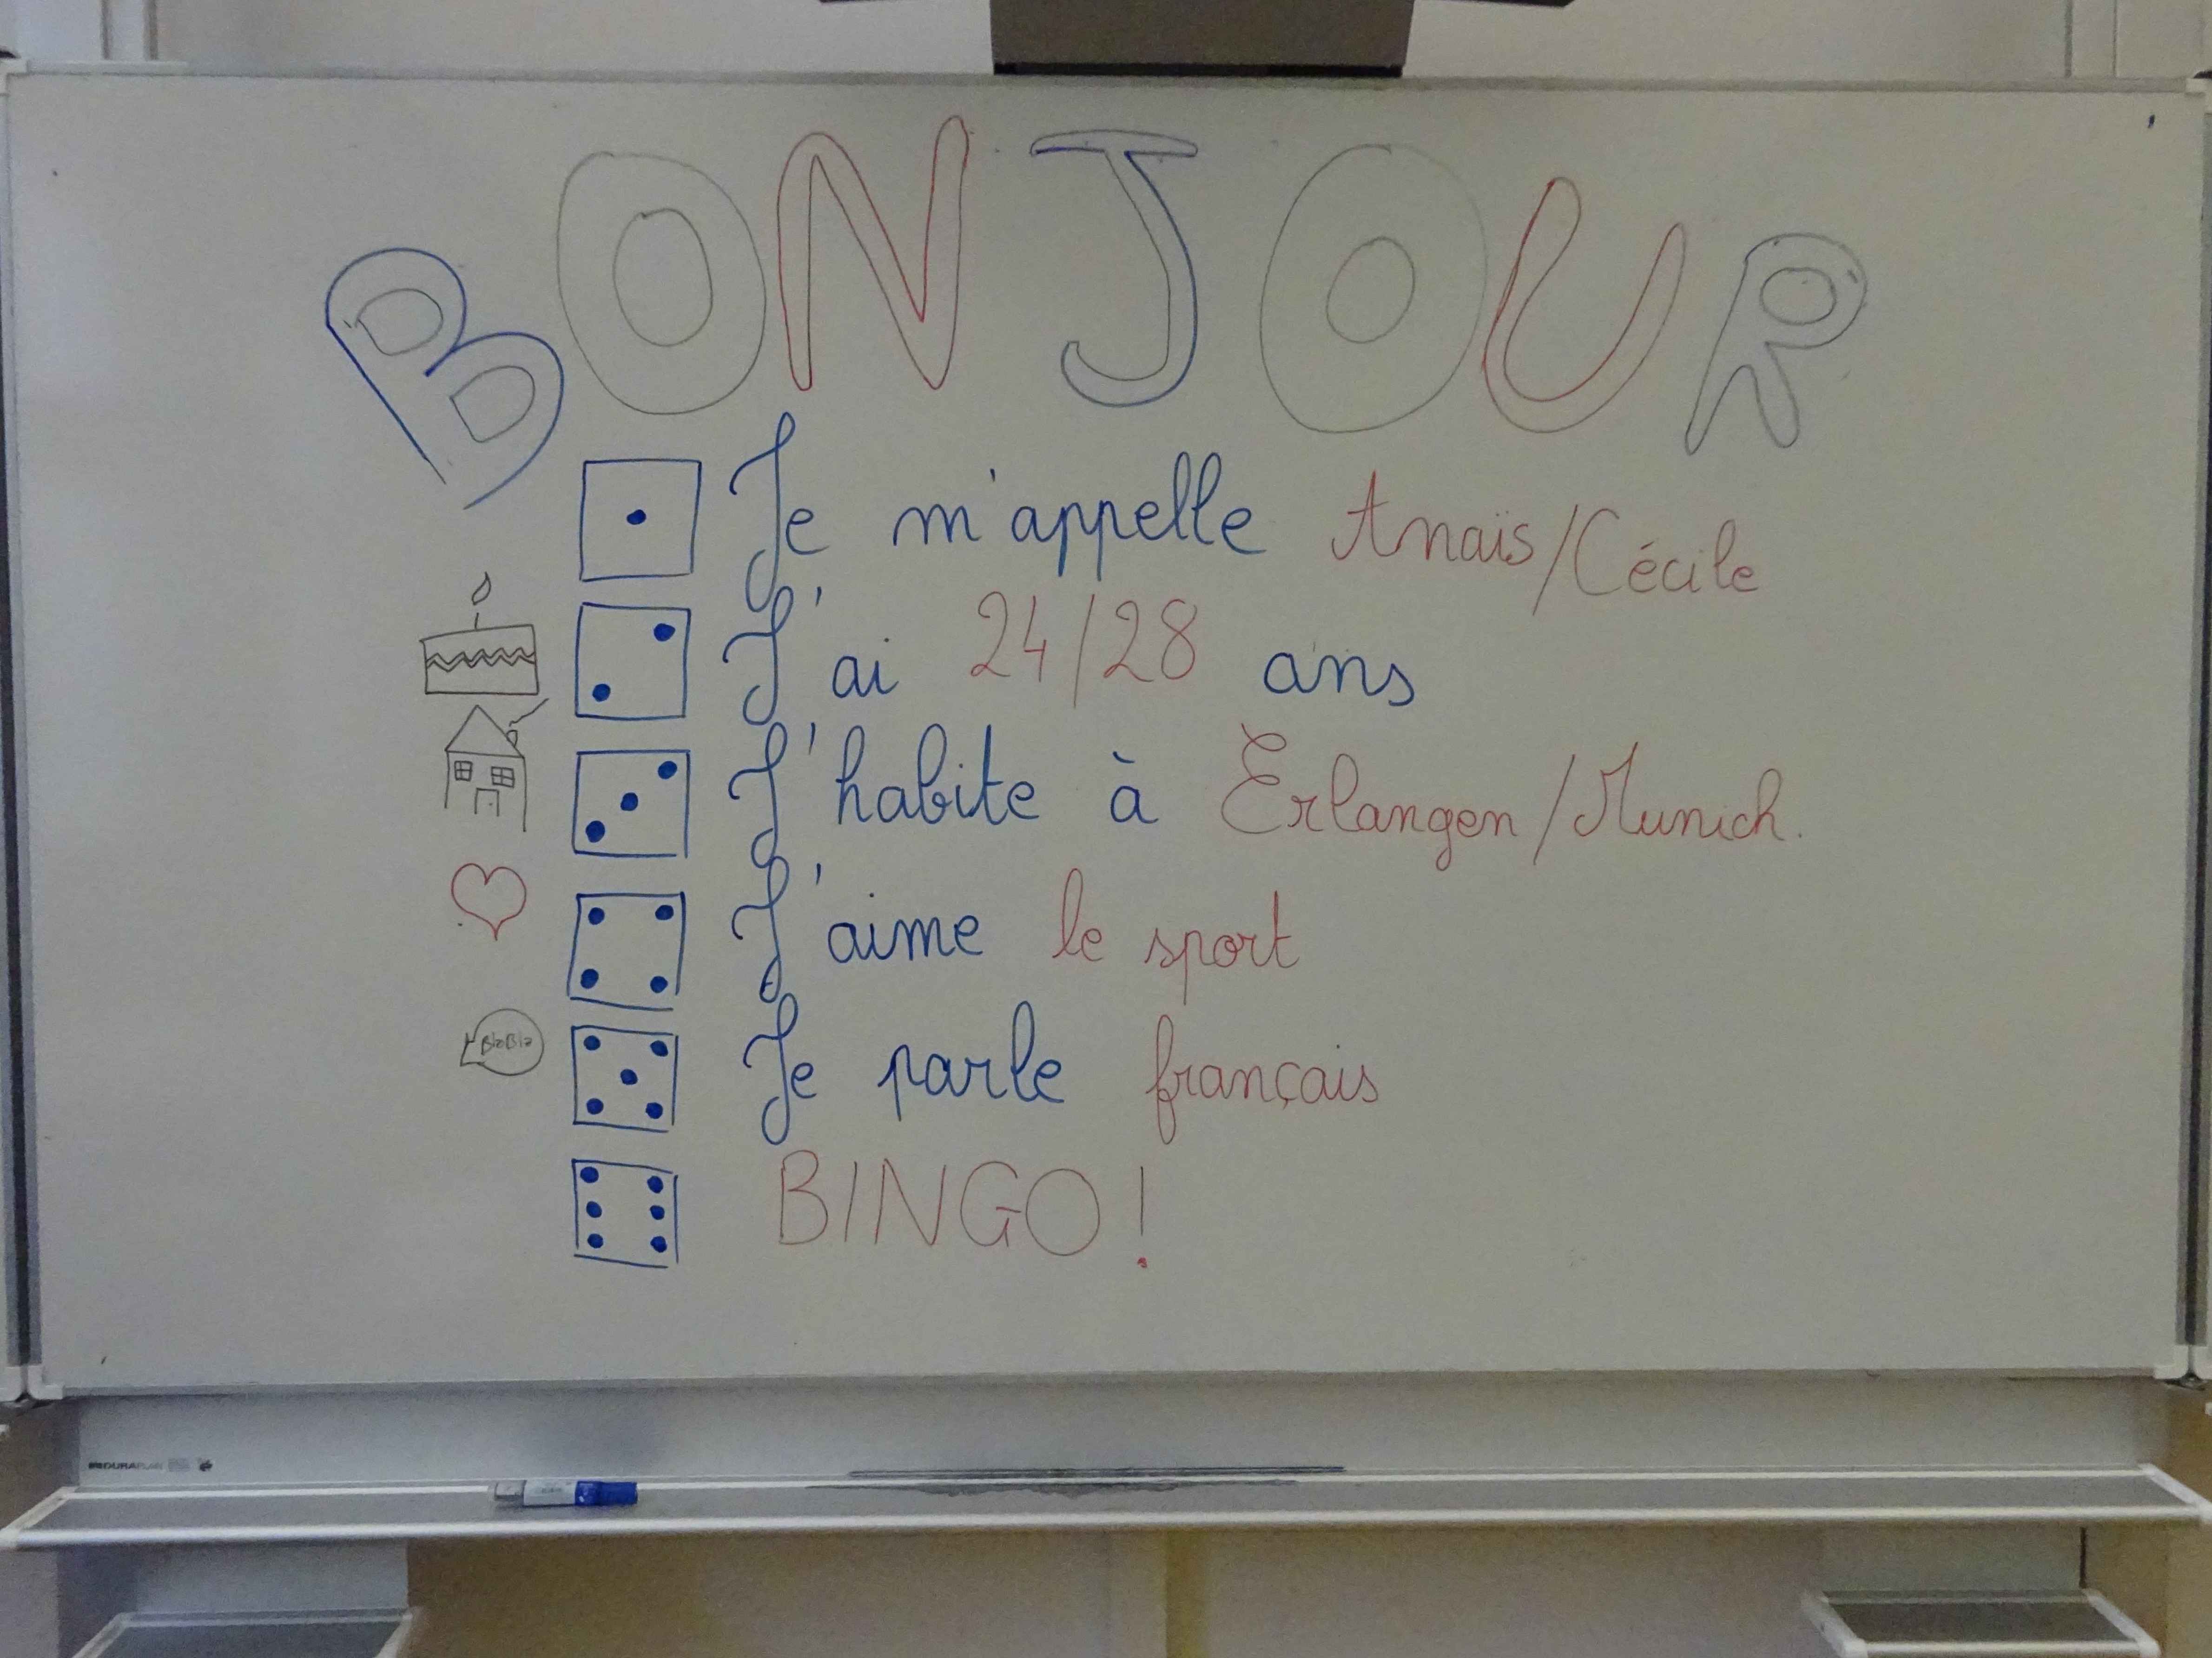 BONJOUR
Je m'appelle Anaïs/Cécile
J'ai 24/28 ans
J'habite à Erlangen/Munich.
J'aime le sport
BlaBla
Je parle français
BINGO!